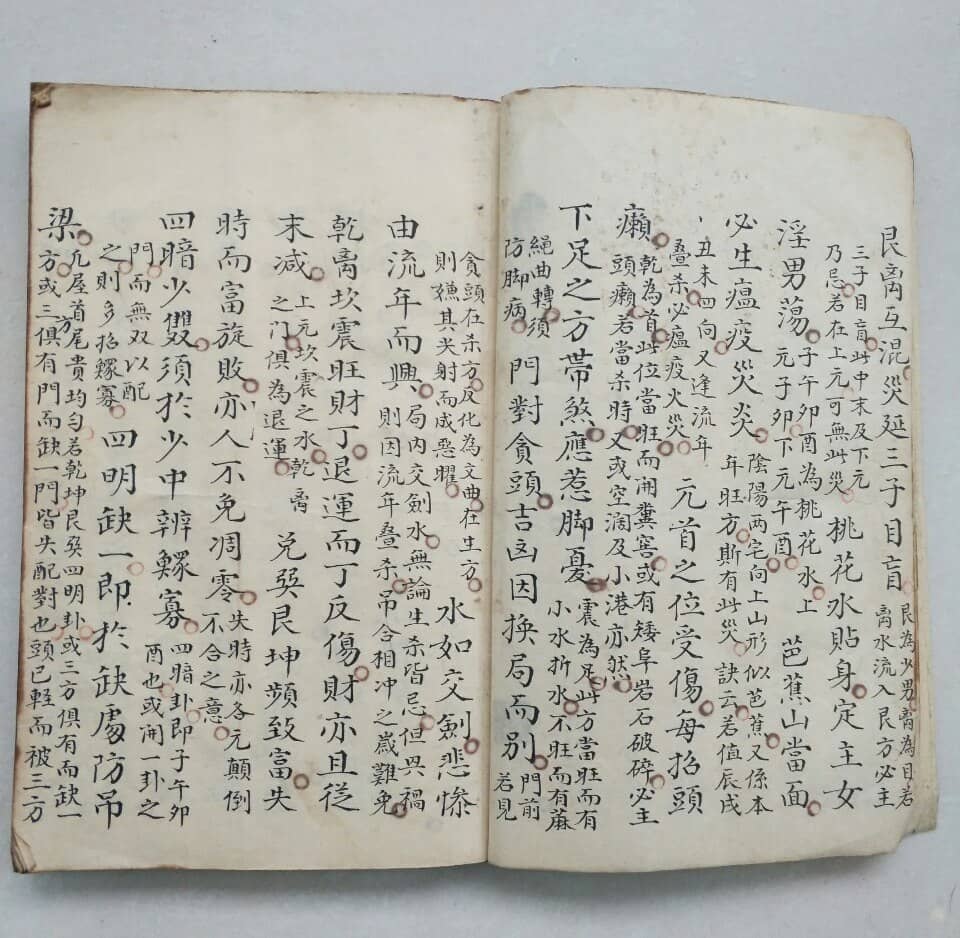 艮离互混災延三子目盲
艮為少男离為目若
离水流入艮方必主
三子目盲此中末及下元
乃忌若在上元可無此災
桃花水貼身定主女
淫男蕩
子午卯酉為桃花水上
元子卯下元午酉
芭蕉山當面
必生瘟疫災炎
陰陽两宅向上山形似芭蕉又係本
年旺方斯有此災訣云若值辰戌
丑未四向又逢流年
叠杀必瘟疫火災
元首之位受傷每招頭
癩
乾為首此位當旺而開糞窖或有矮阜岩石破碎必主
頭癩若當杀時又或空濶及小港亦然
下足之方帶煞應惹脚憂
震為足此方當旺而有
小水折水不旺而有蔴
繩曲轉須
防脚病
門對貪頭吉凶因換局而别
門前
若見
貪頭在杀方反化為文曲在生方
則嫌其尖射而成惡曜
水如交劍悲慘
由流年而興
局内交劍水無論生杀皆忌但畏禍
則因流年叠杀吊合相冲之歲難免
乾离坎震旺財丁退運而丁反傷財亦且從
末减
上元坎震之水乾离
之门俱為退運
兑巽艮坤頻致富失
時而富旋敗亦人不免凋零
失時亦各元顛倒
不合之意
四暗少雙須於少中辨鰥寡
四暗卦即子午卯
酉也或開一卦之
門而無双以配
之則多招鰥寡
四明缺一即於缺處防吊
梁
凢屋首尾貴均匀若乾坤艮巽四明卦或三方俱有而缺一
方或三方俱有門而缺一門皆失配對也頭已輕而被三方